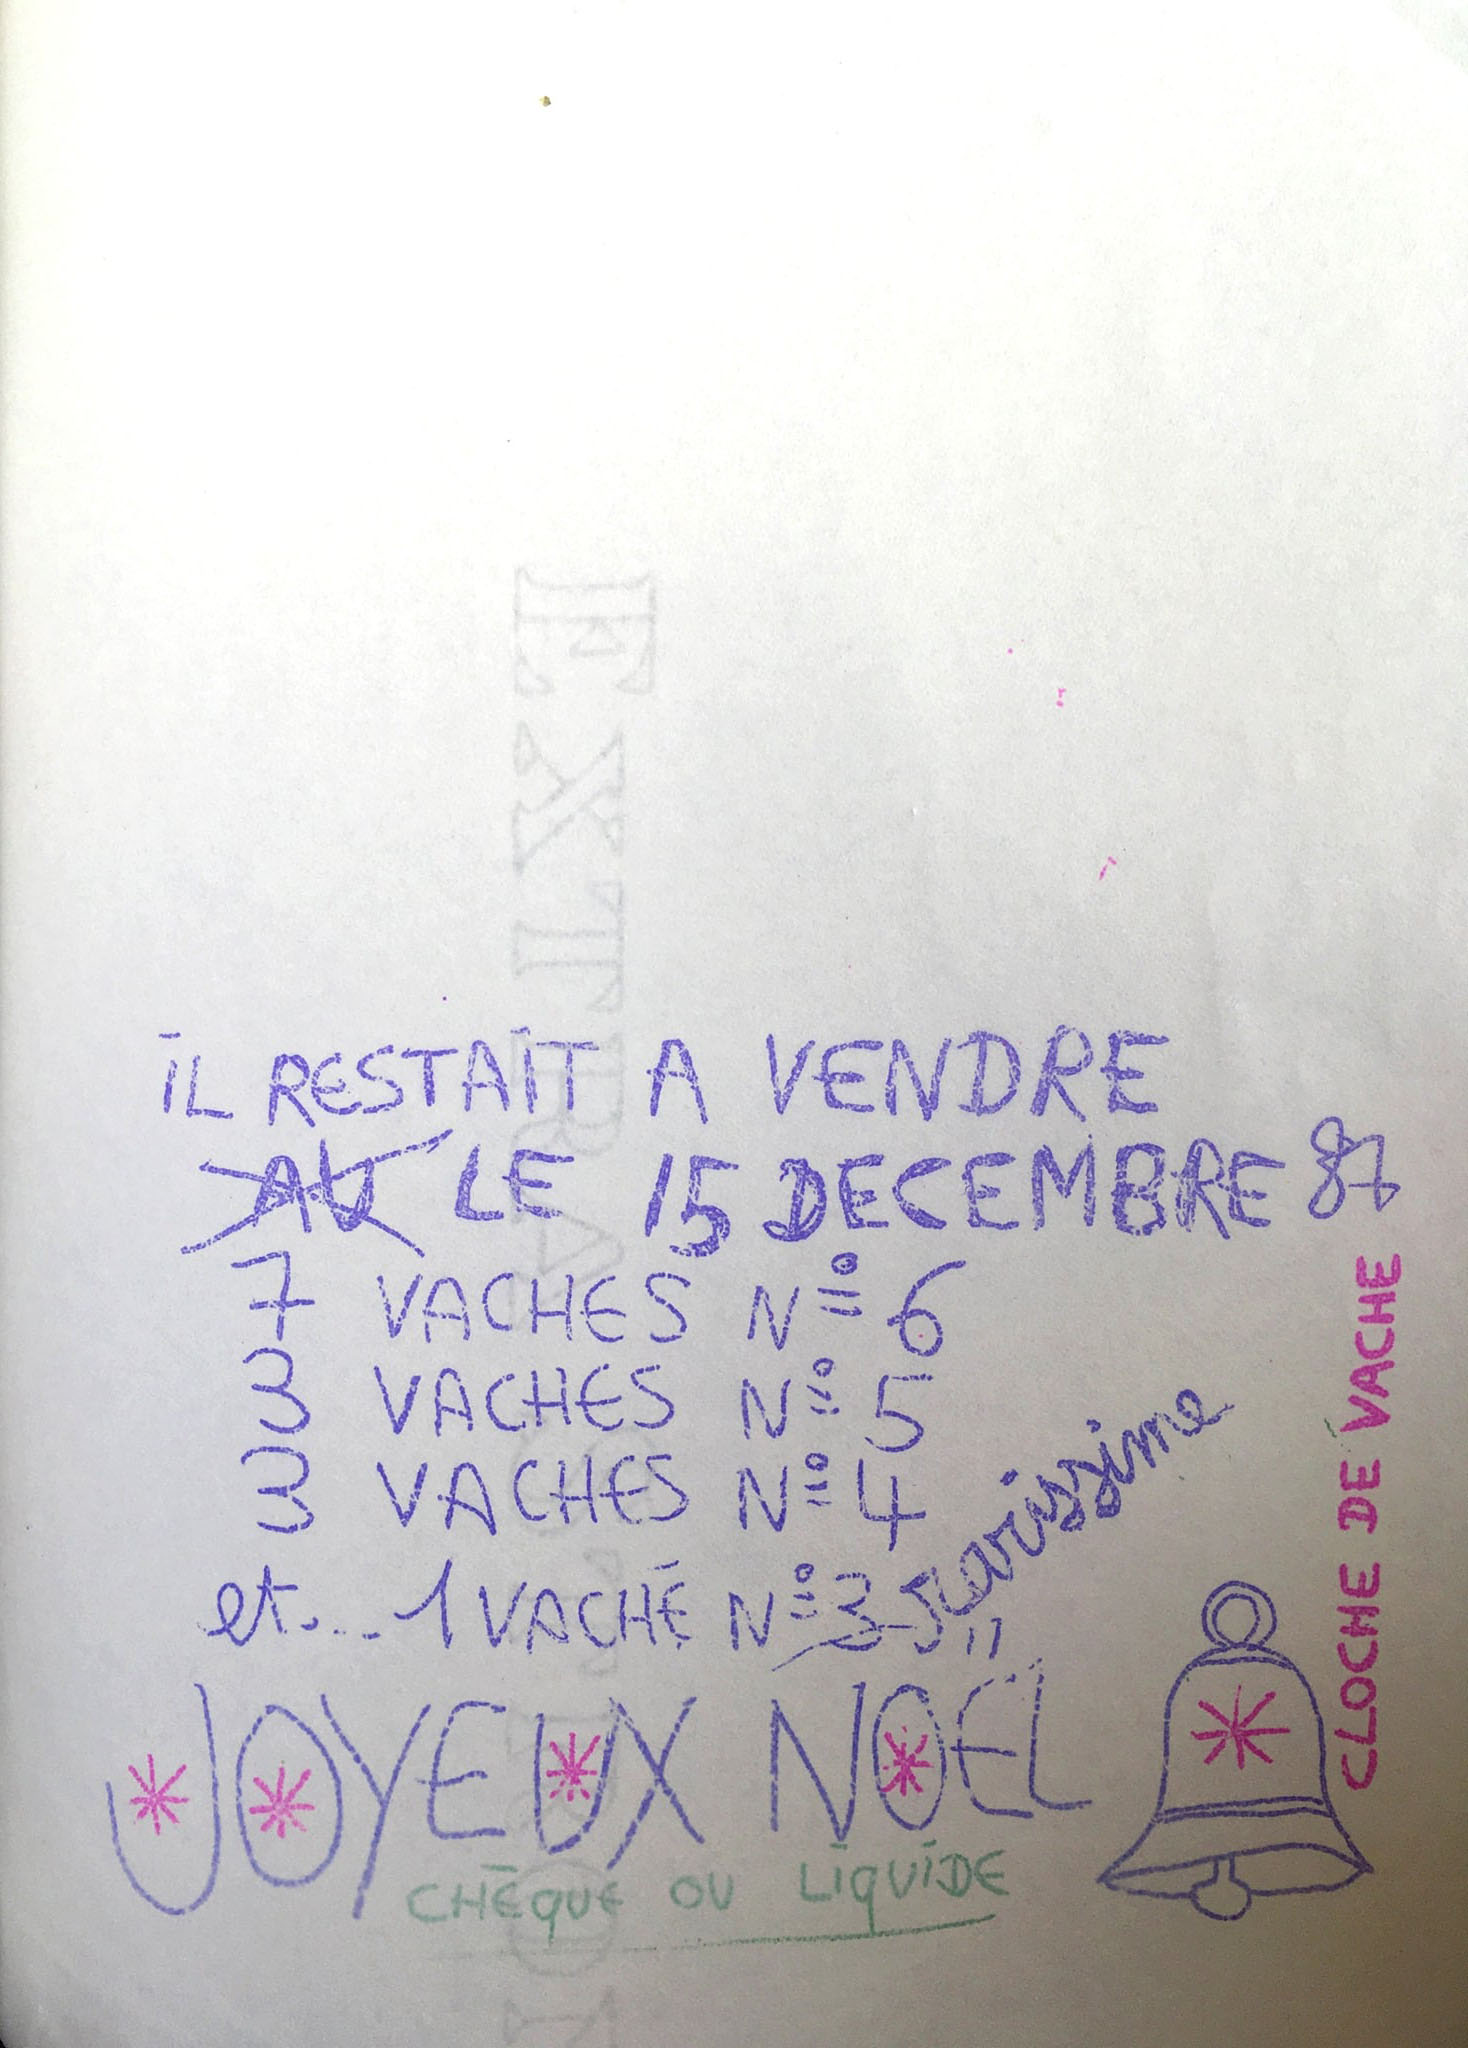 IL RESTAIT A VENDRE
AU LE 15 DECEMBRE 87
7 VACHES N° 6
3 VACHES N° 5
3 VACHES N° 4
et... 1 VACHE N° 3 rarissime
JOYEUX NOEL
CHÈQUE OU LIQUIDE
CLOCHE DE VACHE